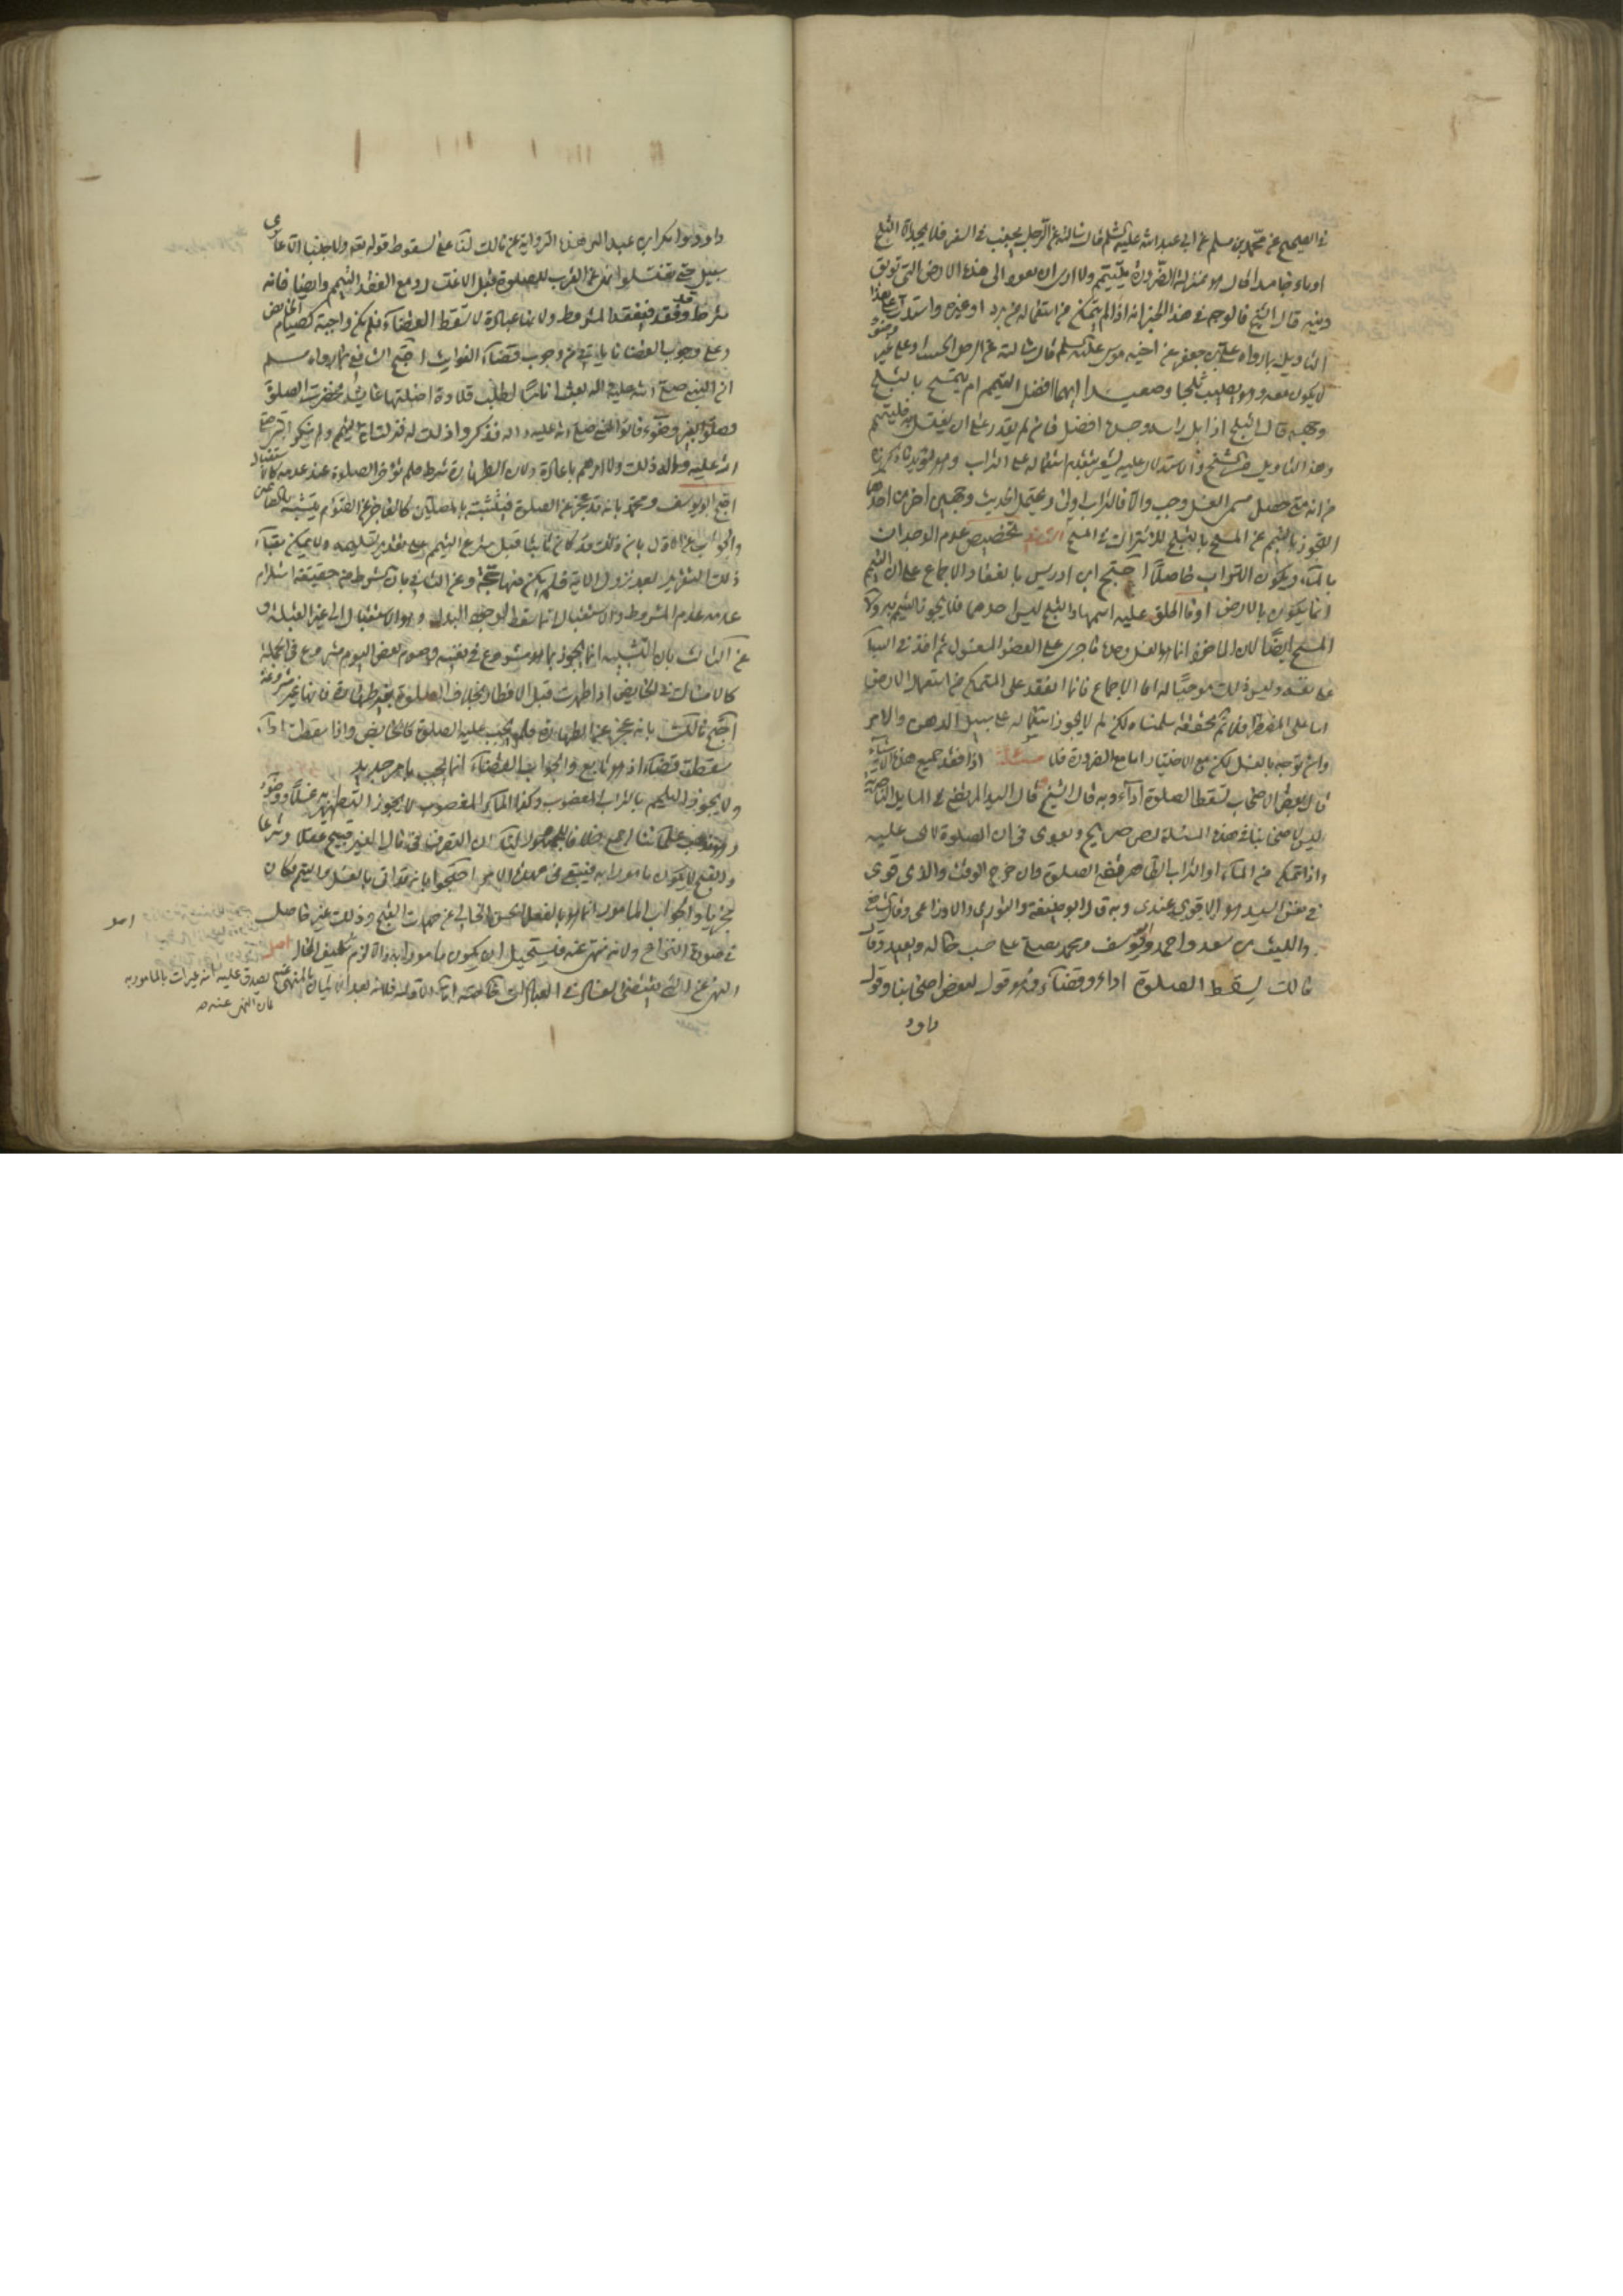 في الصحيح عن محمد بن مسلم عن ابي عبد الله عليه السلم قال سالته عن الرجل يجنب في السفر فلا يجد الا الثلج
او ماء جامدا قال هو بمنزلة الضرورة يتيمم ولا ارى ان يعود الى هذه الارض التي توبق
دينه قال الشيخ فالوجه في هذا الخبر انه اذا لم يتمكن من استعماله من برد او غيره واستدل على هذا
التاويل بما رواه علي بن جعفر عن اخيه موسى عليه السلم قال سالته عن الرجل الجنب او على غير وضوء
لا يكون معه ماء وهو يصيب ثلجا وصعيدا ايهما افضل التيمم ام يتمسح بالثلج
وجهه قال الثلج اذا بل راسه وجسده افضل فان لم يقدر على ان يغتسل به فليتيمم
وهذا التاويل من الشيخ والاستدلال عليه يشعر بتقديم استعماله على التراب وهو يؤيد ما ذكرنا
من انه متى حصل مسمى الغسل وجب والا فالتراب اولى ويحتمل الحديث وجهين اخرين احدهما
التجوز بالتيمم عن المسح بالثلج للاشتراك في المسح الثاني تخصيص عدم الوجدان
بالماء ويكون التراب حاصلا احتج ابن ادريس بانعقاد الاجماع على ان التيمم
انما يكون بالارض او ما اطلق عليه اسمها والثلج ليس احدهما فلا يجوز التيمم به ولا
المسح ايضا لان الماخوذ انما هو الغسل وحده ما جرى على العضو المغسول ثم اخذ في السباب
على نفسه وليس ذلك موجبا له اما الاجماع فانما انعقد على المتمكن من استعمال الارض
اما على المضطر فلا ثم تحققه سلمناه لكن لم لا يجوز استعماله على سبيل الدهن والامر
وان توجه بالغسل لكن مع الاختيار اما مع الضرورة فلا مسئلة اذا فقد جميع هذه الاشياء
قال بعض الاصحاب تسقط الصلوة اداء وبه قال الشيخ قال السيد المرتضى في المسايل الناصرية
ليس لاصحابنا في هذه المسئلة نص صريح ويقوى في ان الصلوة لا تجب عليه
واذا تمكن من الماء او التراب الطاهر قضى الصلوة وان خرج الوقت والذي قوى
في نفس السيد هو الاقوى عندي وبه قال ابو حنيفة والثوري والاوزاعي وقال الشافعي
والليث بن سعد واحمد وابو يوسف ومحمد يصلي على حسب حاله ويعيد وقال
مالك يسقط الصلوة اداء وقضاء وهو قول لبعض اصحابنا وقول
داود
داود وابو بكر ابن عبد البر هذه الرواية عن مالك لنا على السقوط قوله تعالى ولا جنبا الا عابري
سبيل حتى تغتسلوا نهى عن القرب للصلوة قبل الاغتسال ومع الفقد التيمم وايضا فانه
شرط وقد فقد فيفقد المشروط ولانها عبادة لا تسقط القضاء فلم تكن واجبة كصيام الحايض
وعلى وجوب القضاء ما ياتي من وجوب قضاء الفوايت احتج الشافعي بما رواه مسلم
ان النبي صلى الله عليه واله بعث اناسا لطلب قلادة اضلتها عايشة فحضرت الصلوة
فصلوا بغير وضوء فاتوا النبي صلى الله عليه واله فذكروا ذلك له فنزلت اية التيمم ولم ينكر النبي صلى
الله عليه واله ذلك ولا امرهم باعادة ولان الطهارة شرط فلم تؤخر الصلوة عند عدمه كالاستقبال
احتج ابو يوسف ومحمد بانه قد عجز عن الصلوة فيتشبه بالمصلين كالعاجز عن الصوم يتشبه بالصائمين
والجواب عن الاول بان ذلك قد كان ثابتا قبل شرع التيمم وعلى تقدير تسليمه ولا يمكن بقاء
ذلك التقرير بعد نزول الاية فلم يكن فيها حجة وعن الثاني بان الشرط من حقيقته استلزام
عدمه عدم المشروط والاستقبال انما سقط لوجود البدل وهو الاستقبال الى غير القبلة و
عن الثالث بان التشبيه انما يجوز بما هو مشروع في نفسه وصوم بعض اليوم مشروع في الجملة
كالامساك في الحايض اذا طهرت قبل الافطار بخلاف الصلوة بغير طهارة فانها غير مشروعة
احتج مالك بانه عجز عن الطهارة فلم يجب عليه الصلوة كالحايض واذا سقطت اداء
سقطت قضاء اذ هو تابع والجواب القضاء انما يجب بامر جديد
ولا يجوز التيمم بالتراب المغصوب وكذا الماء المغصوب لا يجوز التطهير به غسلا ووضوء
وهو مذهب علمائنا اجمع خلافا للجمهور لنا ان التصرف في مال الغير قبيح عقلا وشرعا
والقبيح لا يكون مامورا به فيبقى في عهدة الامر احتجوا بانه قد اتى بالغسل والتيمم وكان
مجزيا والجواب المامور انما هو بالفعل الحسن الخالي عن جهات القبح وذلك غير حاصل
في صورة النزاع ولانه منهي عنه فيستحيل ان يكون مامورا به والا لزم تكليف المحال اصل
النهي عن الشيء يقتضي الفساد في العبادات خاصة
اصل
بالمنهي عنه يصدق عليه انه غير ات بالمامور به
فان النهي عنه